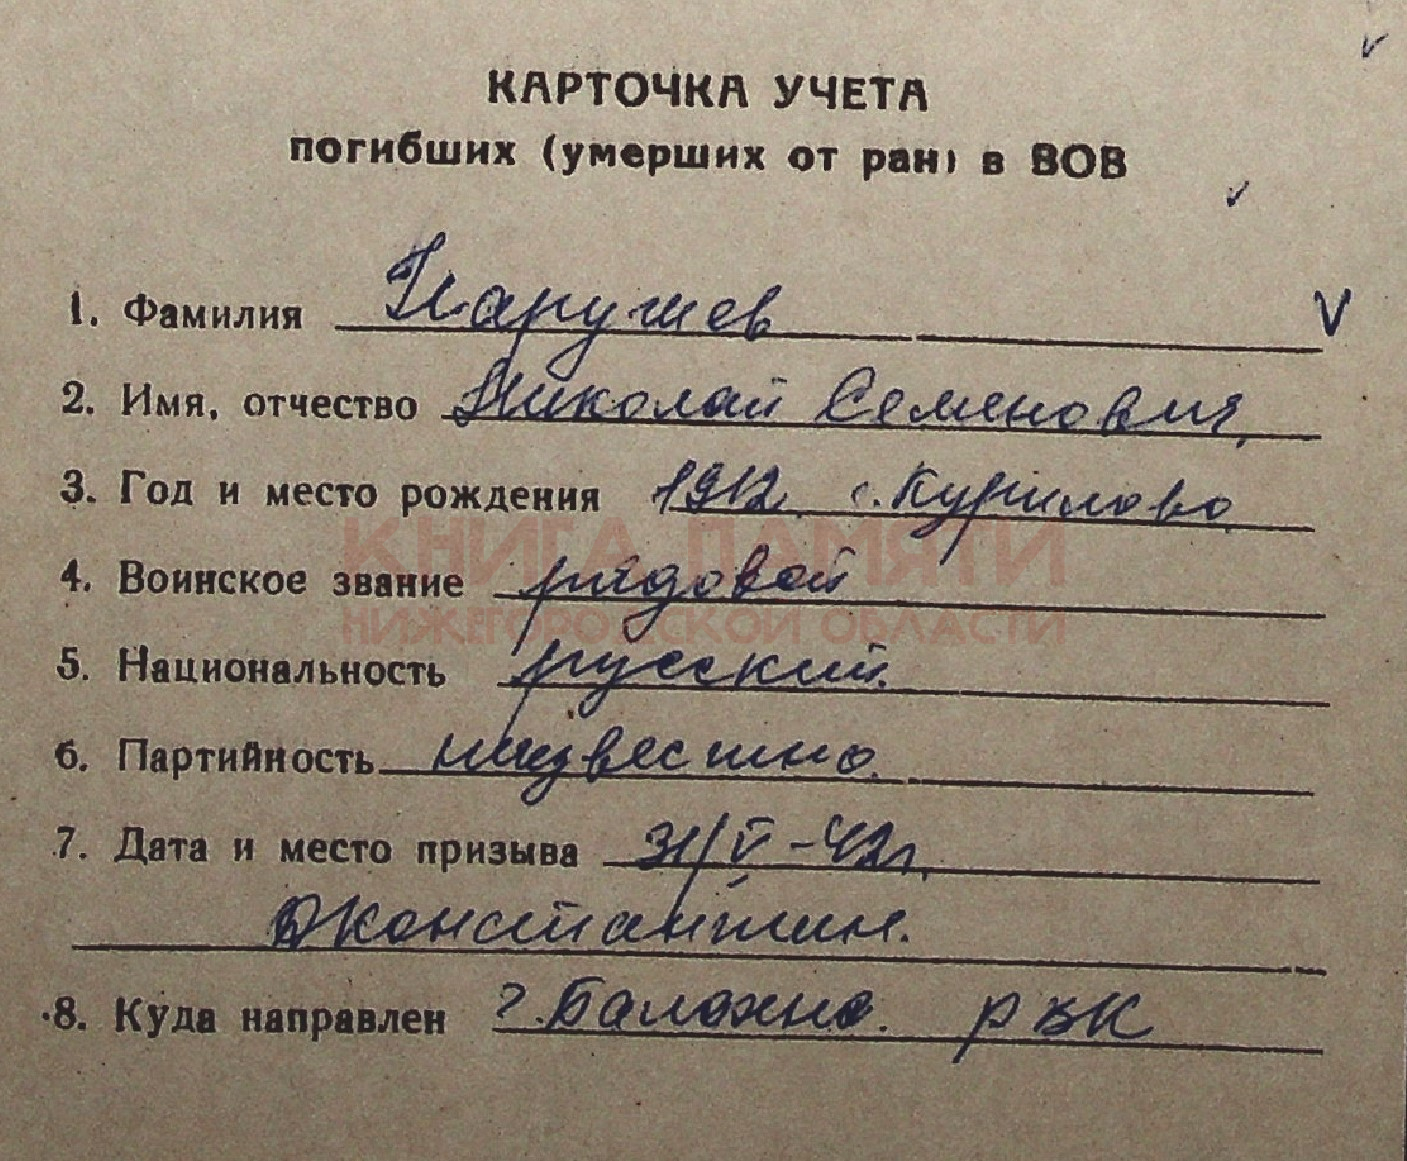 КАРТОЧКА УЧЕТА
погибших (умерших от ран) в ВОВ
1. Фамилия Нарушев
2. Имя, отчество Николай Семенович,
3. Год и место рождения 1912г. с. Курилово
КНИГА ПАМЯТИ
4. Воинское звание рядовой
НИЖЕГОРОДСКОЙ ОБЛАСТИ
5. Национальность русский.
6. Партийность неизвестно.
7. Дата и место призыва 31/V-42г.
константин.
8. Куда направлен г. Балахна. РВК